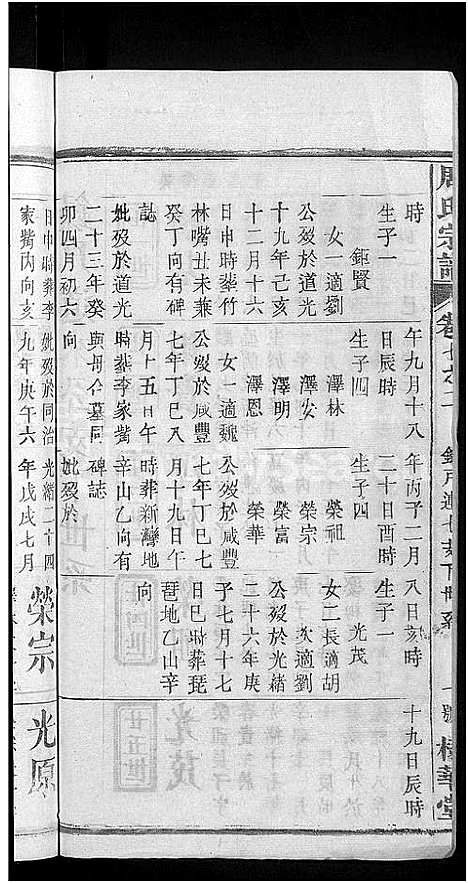 周氏宗譜
卷七之二
時
生子一
鉅賢
女一適劉
公歿於道光
十九年己亥
十二月十六
日申時葬竹
林嘴丑未兼
癸丁向有碑
誌
妣歿於道光
二十三年癸
卯四月初六
日申時葬李
家觜丙向亥
午九月十八
日辰時
生子四
澤林
澤安
澤明
澤恩
女一適魏
公歿於咸豐
七年丁巳八
月十五日午
時葬李家觜
與母合墓同
向
妣歿於同治
九年庚午六
年丙子二月
二十日酉時
生子四
榮祖
榮宗
榮富
榮華
公歿於咸豐
七年丁巳七
月十九日午
時葬新灣地
辛山乙向有
碑誌
妣歿於
光緒二十四
年戊戌七月
八日亥時
生子一
光茂
女二長適胡
次適劉
公歿於光緒
二十六年庚
子七月十七
日巳時葬琵
琶地乙山辛
向
榮宗
十九日辰時
光原